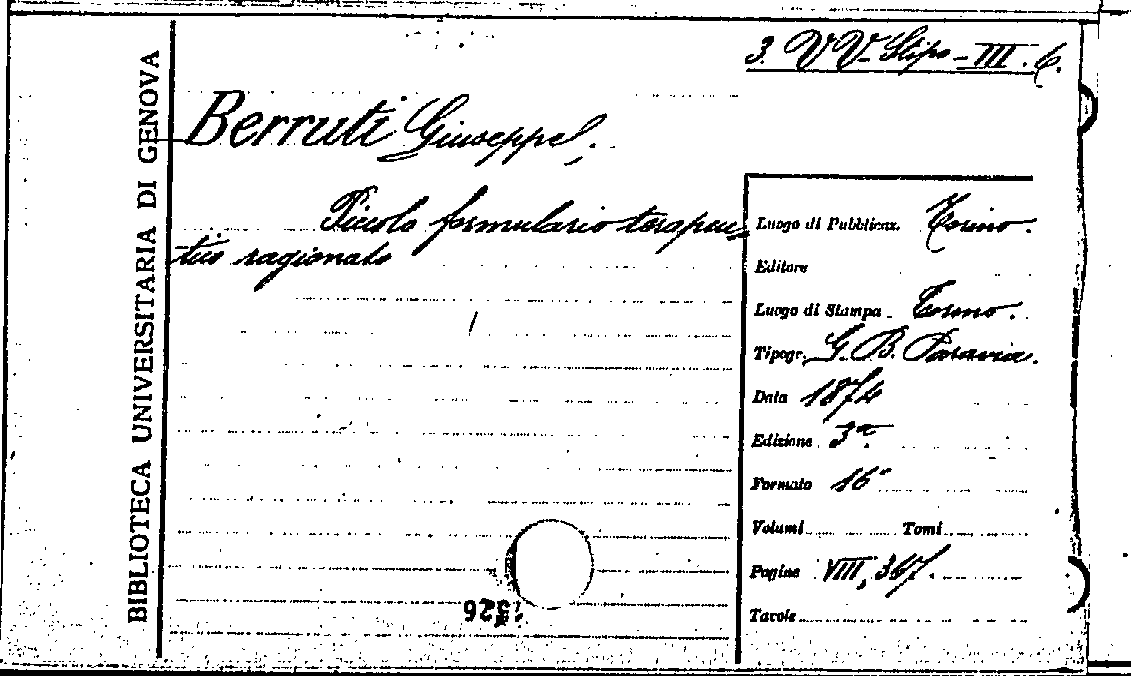 BIBLIOTECA UNIVERSITARIA DI GENOVA
3. VV - Stipo - III. 6.
Berruti Giuseppe,
Piccolo formulario terapeu-
tico ragionato
Luogo di Pubblicaz. Torino.
Editore
Luogo di Stampa Torino.
Tipogr. G. B. Paravia.
Data 1874
Edizione 3a.
Formato 16°
Volumi Tomi
Pagine VIII, 367.
Tavole